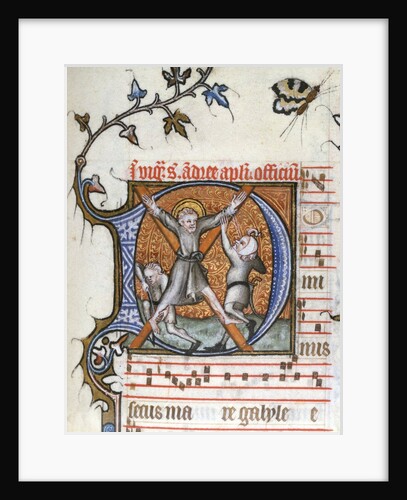 In vigꝰ s. ādree apl'i. officiū.
D
mi
nus
secus ma re galylee e